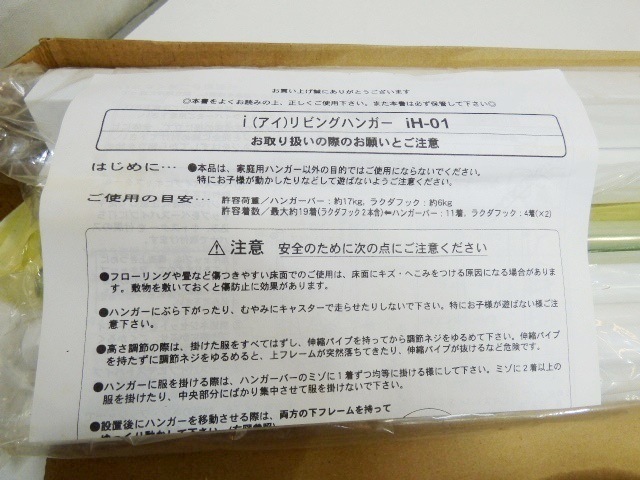 お買い上げ誠にありがとうございます
◎本書をよくお読みの上、正しくご使用下さい。また本書は必ず保管して下さい◎
i (アイ)リビングハンガー iH-01
お取り扱いの際のお願いとご注意
はじめに… ●本品は、家庭用ハンガー以外の目的ではご使用にならないでください。
特にお子様が動かしたりなどして遊ばないようご注意ください。
ご使用の目安… 許容荷重／ハンガーバー：約17kg, ラクダフック：約6kg
許容着数／最大約19着(ラクダフック2本含)⇐ハンガーバー：11着, ラクダフック：4着(×2)
⚠ 注意 安全のために次の点にご注意ください
●フローリングや畳など傷つきやすい床面でのご使用は、床面にキズ・へこみをつける原因になる場合があります。
敷物を敷いておくと傷防止に効果があります。
●ハンガーにぶら下がったり、むやみにキャスターで走らせたりしないで下さい。特にお子様が遊ばない様ご注
意下さい。
●高さ調節の際は、掛けた服をすべてはずし、伸縮パイプを持ってから調節ネジをゆるめて下さい。伸縮パイプ
を持たずに調節ネジをゆるめると、上フレームが突然落ちてきたり、伸縮パイプが抜けるなど危険です。
●ハンガーに服を掛ける際は、ハンガーバーのミゾに1着ずつ均等に掛ける様にして下さい。ミゾに2着以上の
服を掛けたり、中央部分にばかり集中させて服を掛けないで下さい。
●設置後にハンガーを移動させる際は、両方の下フレームを持って
ゆっくり動かして下さい。(右図参照)